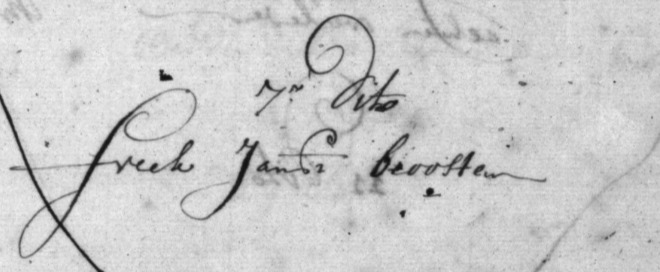 7r dito
freek Jansz beoosten